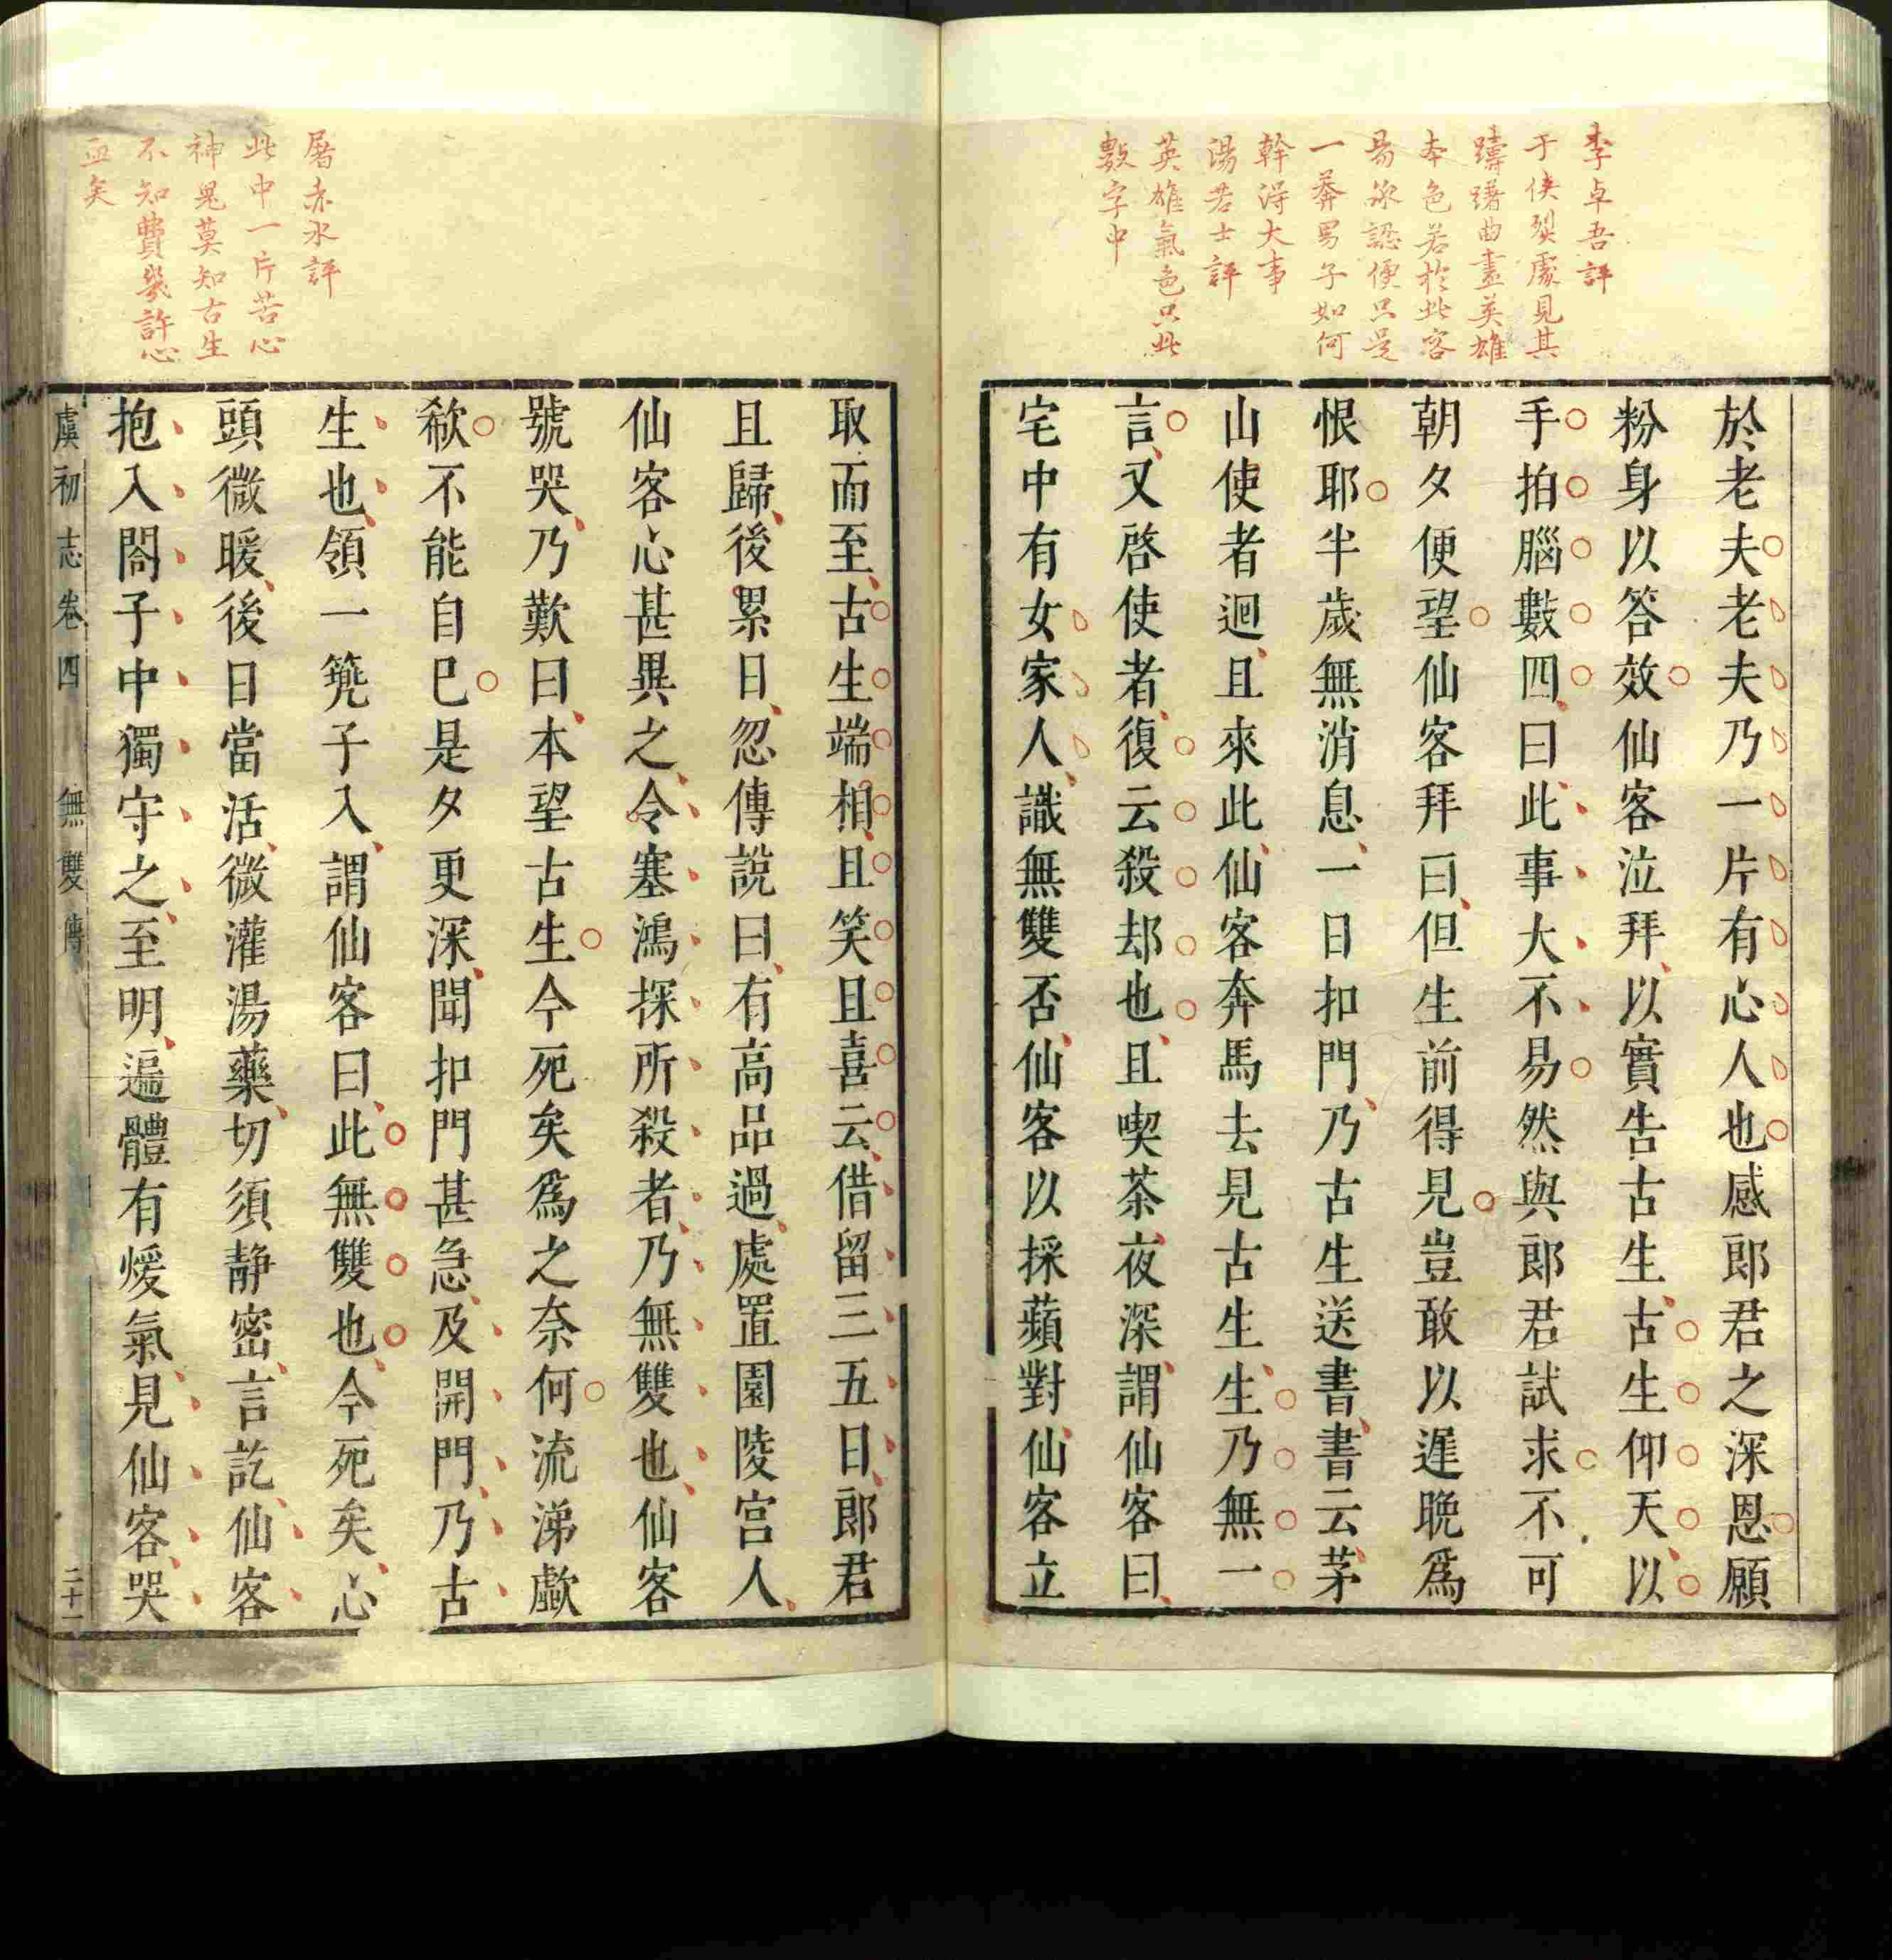 李卓吾評
于俠烈處見其
躊躇曲盡英雄
本色若於此容
易承認便只是
一莽男子如何
幹得大事
湯若士評
英雄氣色只此
數字中
於老夫老夫乃一片有心人也感郎君之深恩願
粉身以答效仙客泣拜以實告古生古生仰天以
手拍腦數四曰此事大不易然與郎君試求不可
朝夕便望仙客拜曰但生前得見豈敢以遲晚爲
恨耶半歲無消息一日扣門乃古生送書書云茅
山使者迴且來此仙客奔馬去見古生生乃無一
言又啓使者復云殺却也且喫茶夜深謂仙客曰
宅中有女家人識無雙否仙客以採蘋對仙客立
屠赤水評
此中一片苦心
神鬼莫知古生
不知費幾許心
血矣
取而至古生端相且笑且喜云借留三五日郎君
且歸後累日忽傳說曰有高品過處置園陵宮人
仙客心甚異之令塞鴻探所殺者乃無雙也仙客
號哭乃歎曰本望古生今死矣爲之奈何流涕歔
欷不能自已是夕更深聞扣門甚急及開門乃古
生也領一篼子入謂仙客曰此無雙也今死矣心
頭微暖後日當活微灌湯藥切須静密言訖仙客
抱入閤子中獨守之至明遍體有煖氣見仙客哭
虞初志卷四 無雙傳 二十二